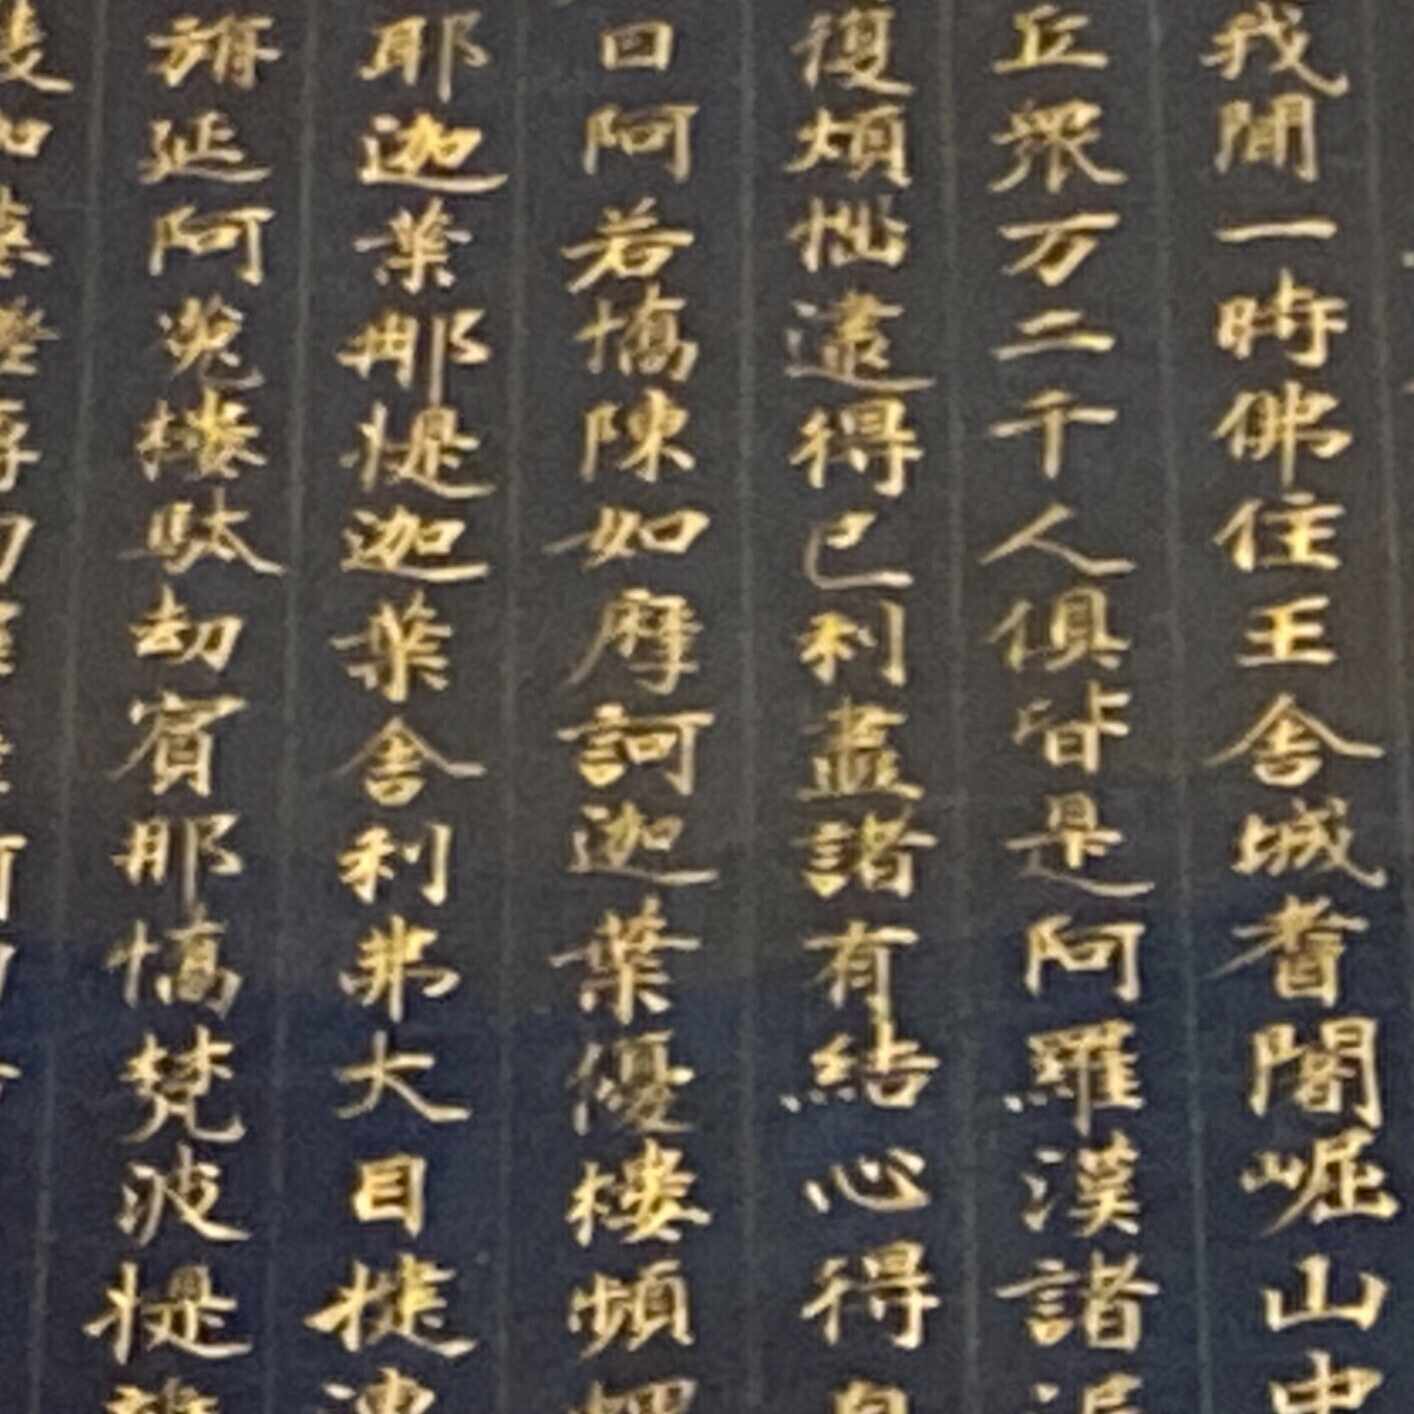 我聞一時佛住王舍城耆闍崛山中
丘衆万二千人俱皆是阿羅漢諸漏
復煩惱逮得己利盡諸有結心得自
曰阿若憍陳如摩訶迦葉優樓頻螺
耶迦葉那提迦葉舍利弗大目揵連
旃延阿㝹樓馱劫賓那憍梵波提離